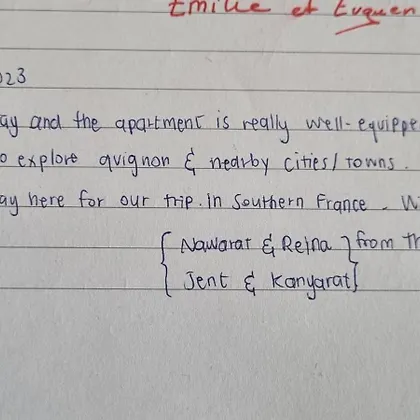 Emilie et Eugen
023
ay and the apartment is really well-equippe
o explore avignon & nearby cities/towns.
ay here for our trip. in Southern France. Wi
{ Nawarat & Reina } from th
{ Jent & Kanyarat }